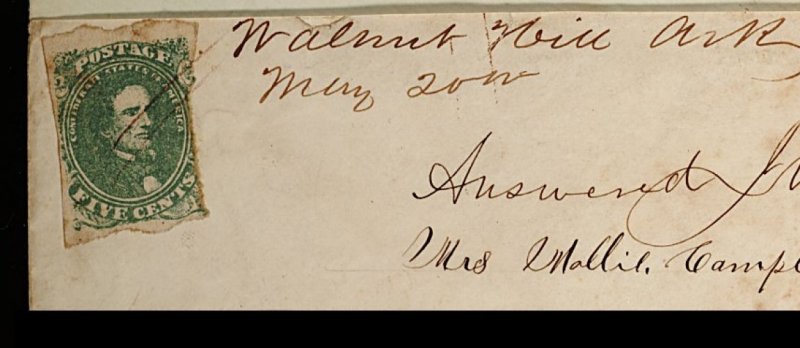 POSTAGE
CONFEDERATE STATES OF AMERICA
FIVE CENTS
Walnut Hill Ark
May 20th
Answered
Mrs Mollie. Camp